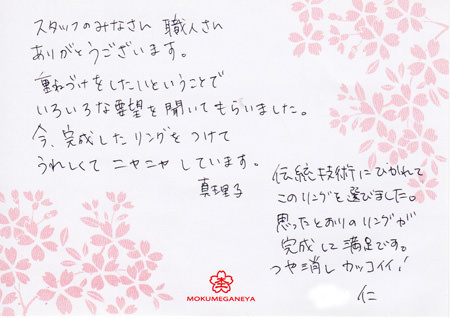 スタッフのみなさん 職人さん
ありがとうございます。
重ねづけをしたいということで
いろいろな要望を聞いてもらいました。
今、完成したリングをつけて
うれしくてニヤニヤしています。
真理子
伝統技術にひかれて
このリングを選びました。
思ったとおりのリングが
完成して満足です。
つや消しカッコイイ!
仁
MOKUMEGANEYA